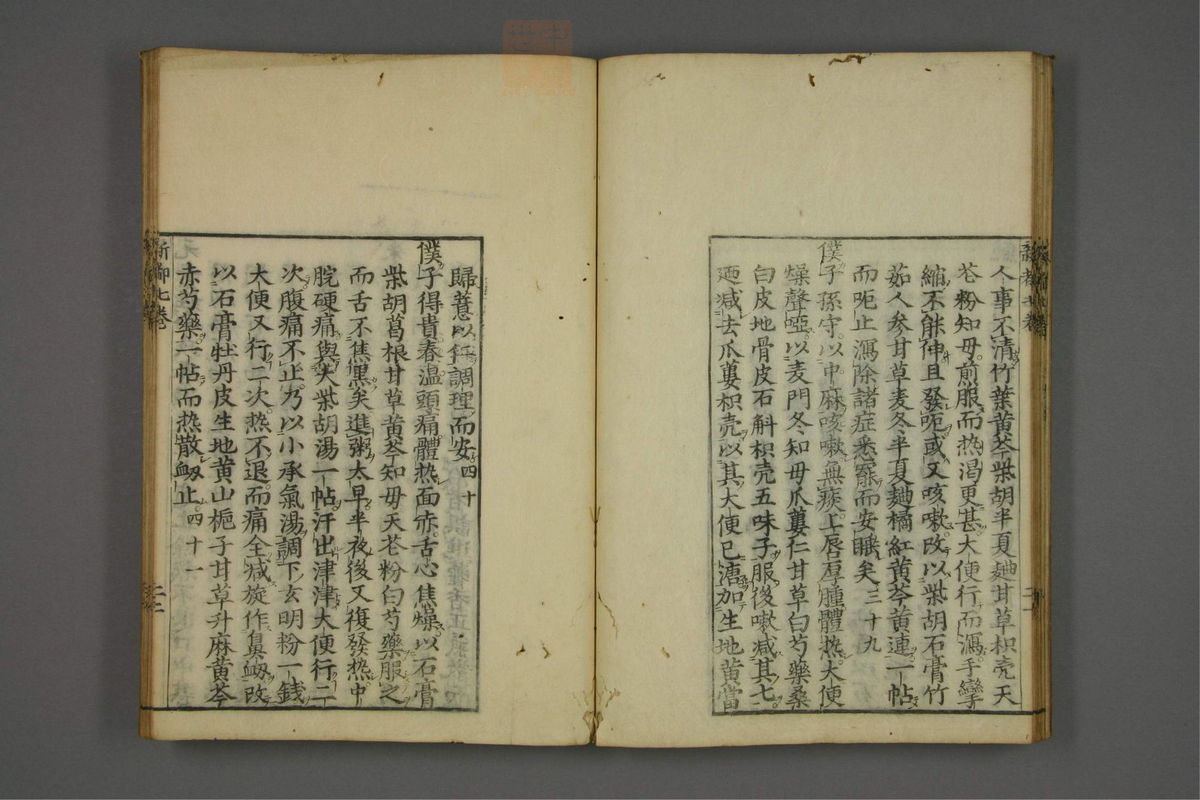 人事不清竹葉黄芩柴胡半夏麯甘草枳壳天
苍粉知母煎服而热渴更甚大便行而瀉手攣
縮不能伸且發呃或又咳嗽改以柴胡石膏竹
茹人参甘草麦冬半夏麯橘紅黄芩黄連一帖
而呃止瀉除諸症悉寤而安眠矣三十九
僕子孫守以中麻咳嗽無痰上唇厚腫體热大便
燥聲啞以麦門冬知母爪蔞仁甘草白芍藥桑
白皮地骨皮石斛枳壳五味子服後嗽减其七
廼减去爪蔞枳壳以其大便已溏加生地黄當
歸薏以仁調理而安四十
僕子得貴春温頭痛體热面赤舌心焦燥以石膏
柴胡葛根甘草黄芩知母天苍粉白芍藥服之
而舌不焦黒矣進粥太早半夜後又復發热中
脘硬痛與大柴胡湯一帖汗出津津大便行二
次腹痛不止乃以小承氣湯調下玄明粉一錢
太便又行二次热不退而痛全减旋作鼻衂改
以石膏牡丹皮生地黄山梔子甘草升麻黄芩
赤芍藥一帖而热散衂止四十一